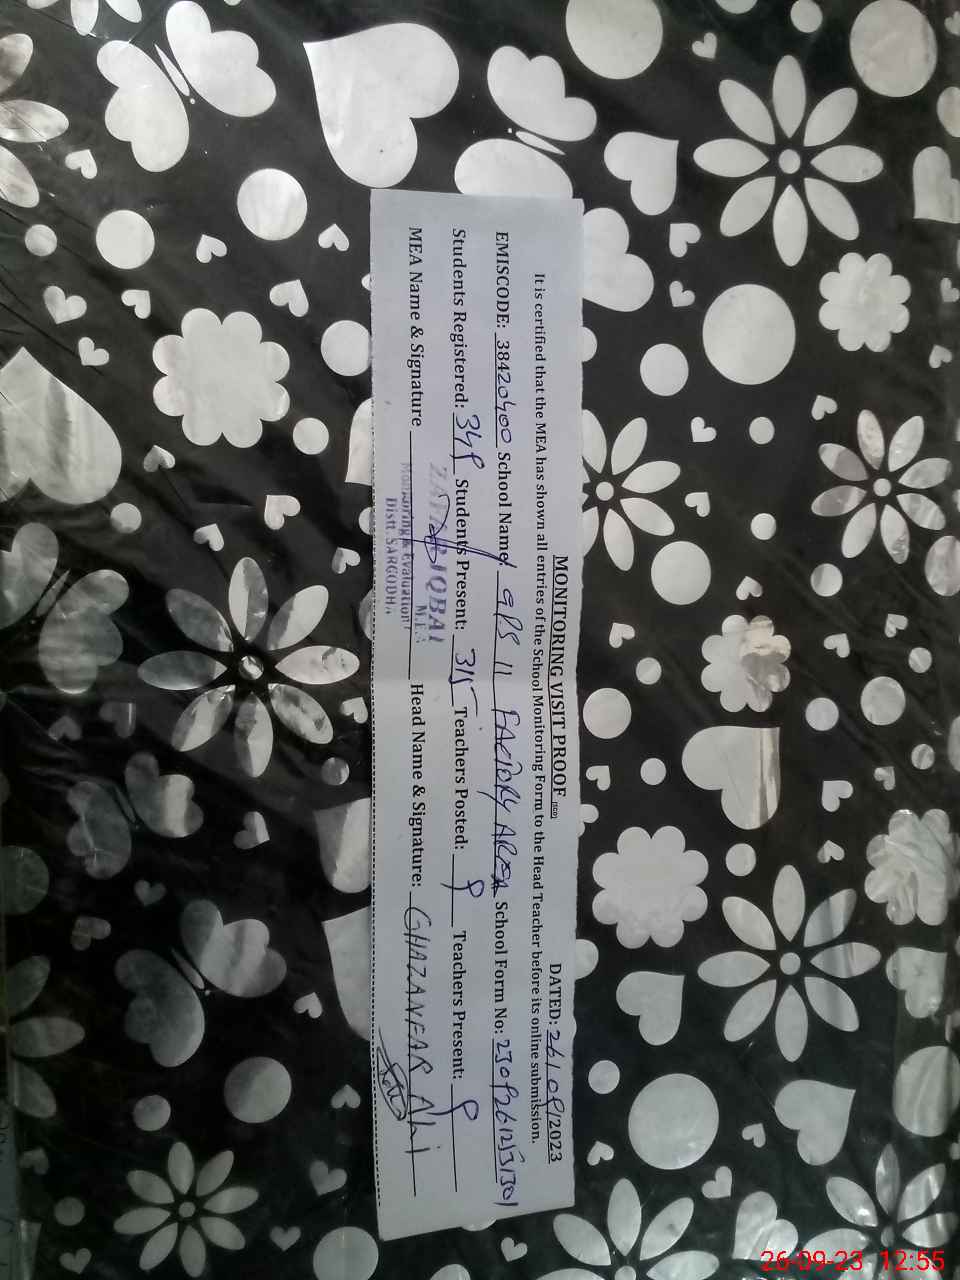 MONITORING VISIT PROOF DATED: 26/09/2023
It is certified that the MEA has shown all entries of the School Monitoring Form to the Head Teacher before its online submission.
EMISCODE: 38420400 School Name: GPS 11 FACTORY AREA School Form No:
Students Registered: 349 Students Present: 315 Teachers Posted: 9 Teachers Present: 9
MEA Name & Signature Head Name & Signature: GHAZANFAR Ali
IQBAL
M.E.A
Monitoring & Evaluation
Distt. SARGODHA
26-09-23 12:55